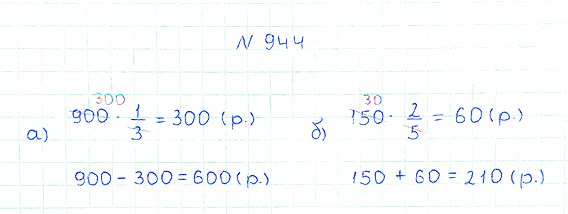 N 944
300
а) 900 · 1/3 = 300 (р.)
900 – 300 = 600 (р.)
30
б) 150 · 2/5 = 60 (р.)
150 + 60 = 210 (р.)